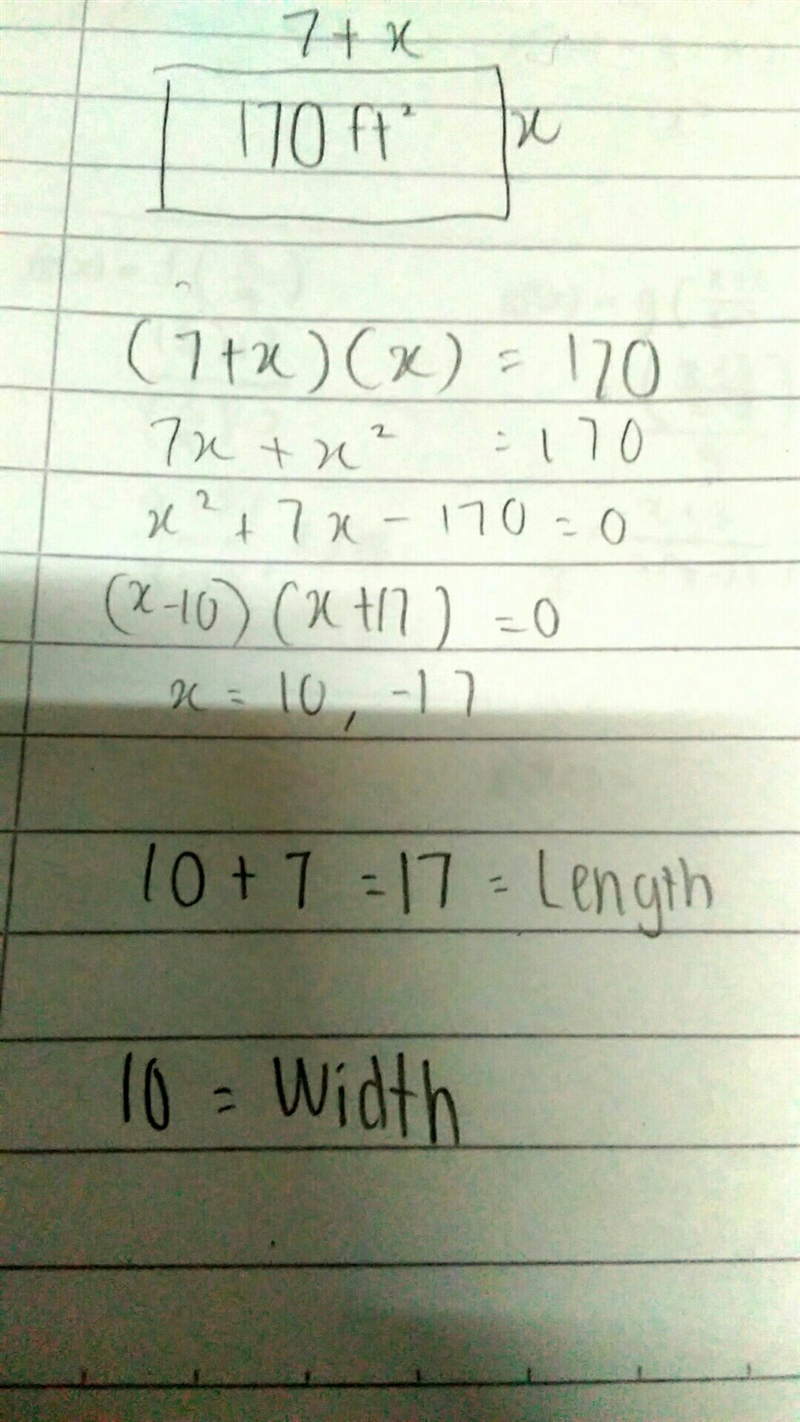 7 + x
170 ft² x
(7 + x)(x) = 170
7x + x² = 170
x² + 7x - 170 = 0
(x - 10)(x + 17) = 0
x = 10, -17
10 + 7 = 17 = Length
10 = Width